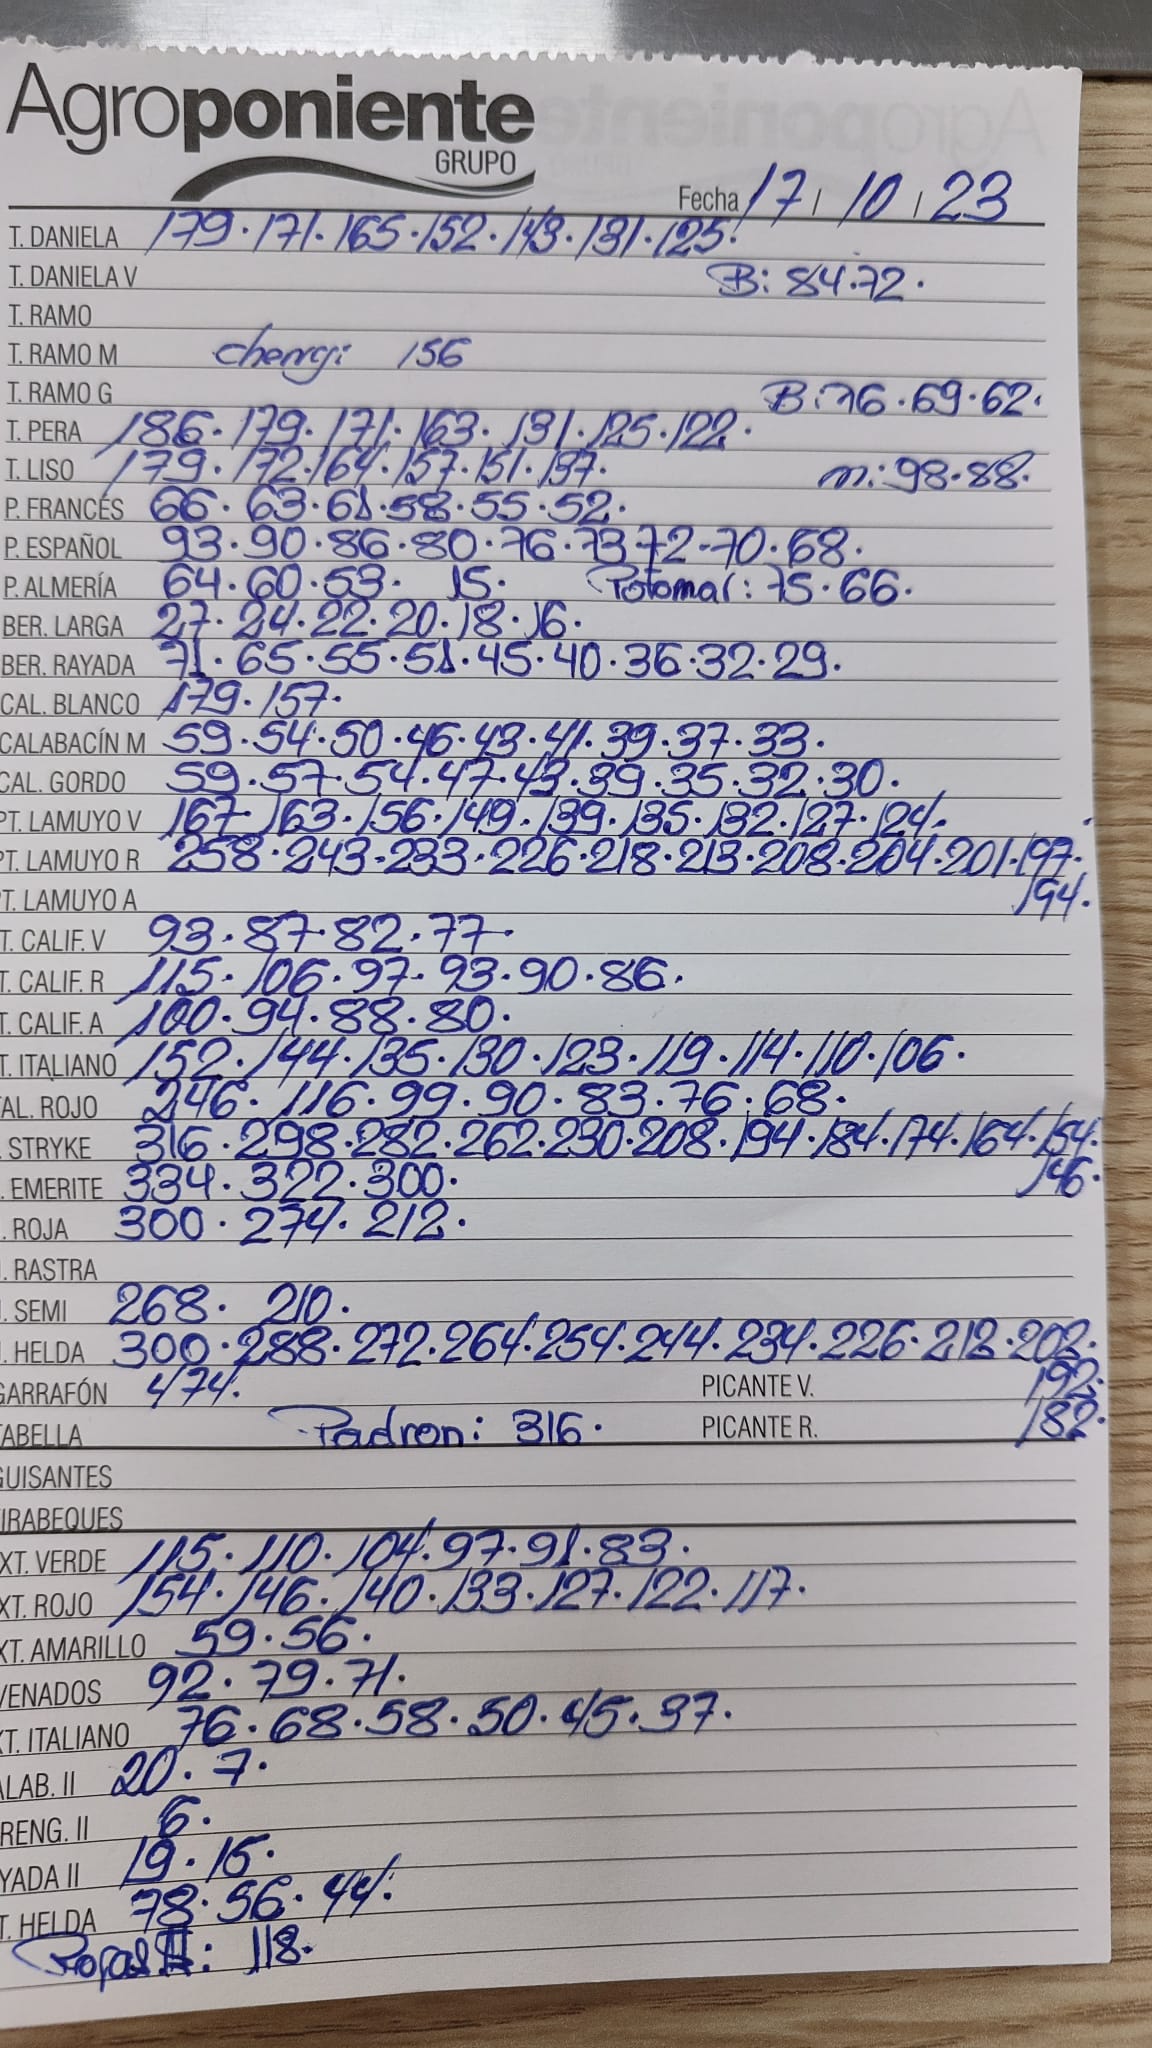 Agroponiente
GRUPO
Fecha 17 / 10 / 23
T. DANIELA 179. 171. 165. 152. 143. 131. 125.
T. DANIELA V B: 84.72.
T. RAMO
T. RAMO M 156
T. RAMO G B: 76.69.62.
T. PERA 186. 179. 171. 163. 131. 125. 122.
T. LISO 179. 172. 164. 157. 151. 137. m: 98.88.
P. FRANCÉS 66. 63. 61. 58. 55. 52.
P. ESPAÑOL 93. 90. 86. 80. 76. 73 72-70. 68.
P. ALMERÍA 64. 60. 53. 15. 75. 66.
BER. LARGA 27. 24. 22. 20. 18. 16.
BER. RAYADA 71. 65. 55. 51. 45. 40. 36. 32. 29.
CAL. BLANCO 179. 157.
CALABACÍN M 59. 54. 50. 46. 43. 41. 39. 37. 33.
CAL. GORDO 59. 57. 54. 47. 43. 39. 35. 32. 30.
PT. LAMUYO V 167. 163. 156. 149. 139. 135. 132. 127. 124.
PT. LAMUYO R 258. 243. 233. 226. 218. 213. 208. 204. 201. 197.
PT. LAMUYO A 194.
T. CALIF. V 93. 87. 82. 77.
T. CALIF. R 115. 106. 97. 93. 90. 86.
T. CALIF. A 100. 94. 88. 80.
T. ITALIANO 152. 144. 135. 130. 123. 119. 114. 110. 106.
AL. ROJO 246. 116. 99. 90. 83. 76. 68.
. STRYKE 316. 298. 282. 262. 230. 208. 194. 184. 174. 164. 154.
. EMERITE 334. 322. 300. 146.
. ROJA 300. 274. 212.
. RASTRA
. SEMI 268. 210.
. HELDA 300. 288. 272. 264. 254. 244. 234. 226. 212. 202.
GARRAFÓN 474. PICANTE V. 192.
TABELLA Padron: 316. PICANTE R. 182.
GUISANTES
TIRABEQUES
XT. VERDE 115. 110. 104. 97. 91. 83.
XT. ROJO 154. 146. 140. 133. 127. 122. 117.
XT. AMARILLO 59. 56.
VENADOS 92. 79. 71.
XT. ITALIANO 76. 68. 58. 50. 45. 37.
ALAB. II 20. 7.
RENG. II 6.
YADA II 19. 15.
T. HELDA 78. 56. 44.
Rojas II: 118.